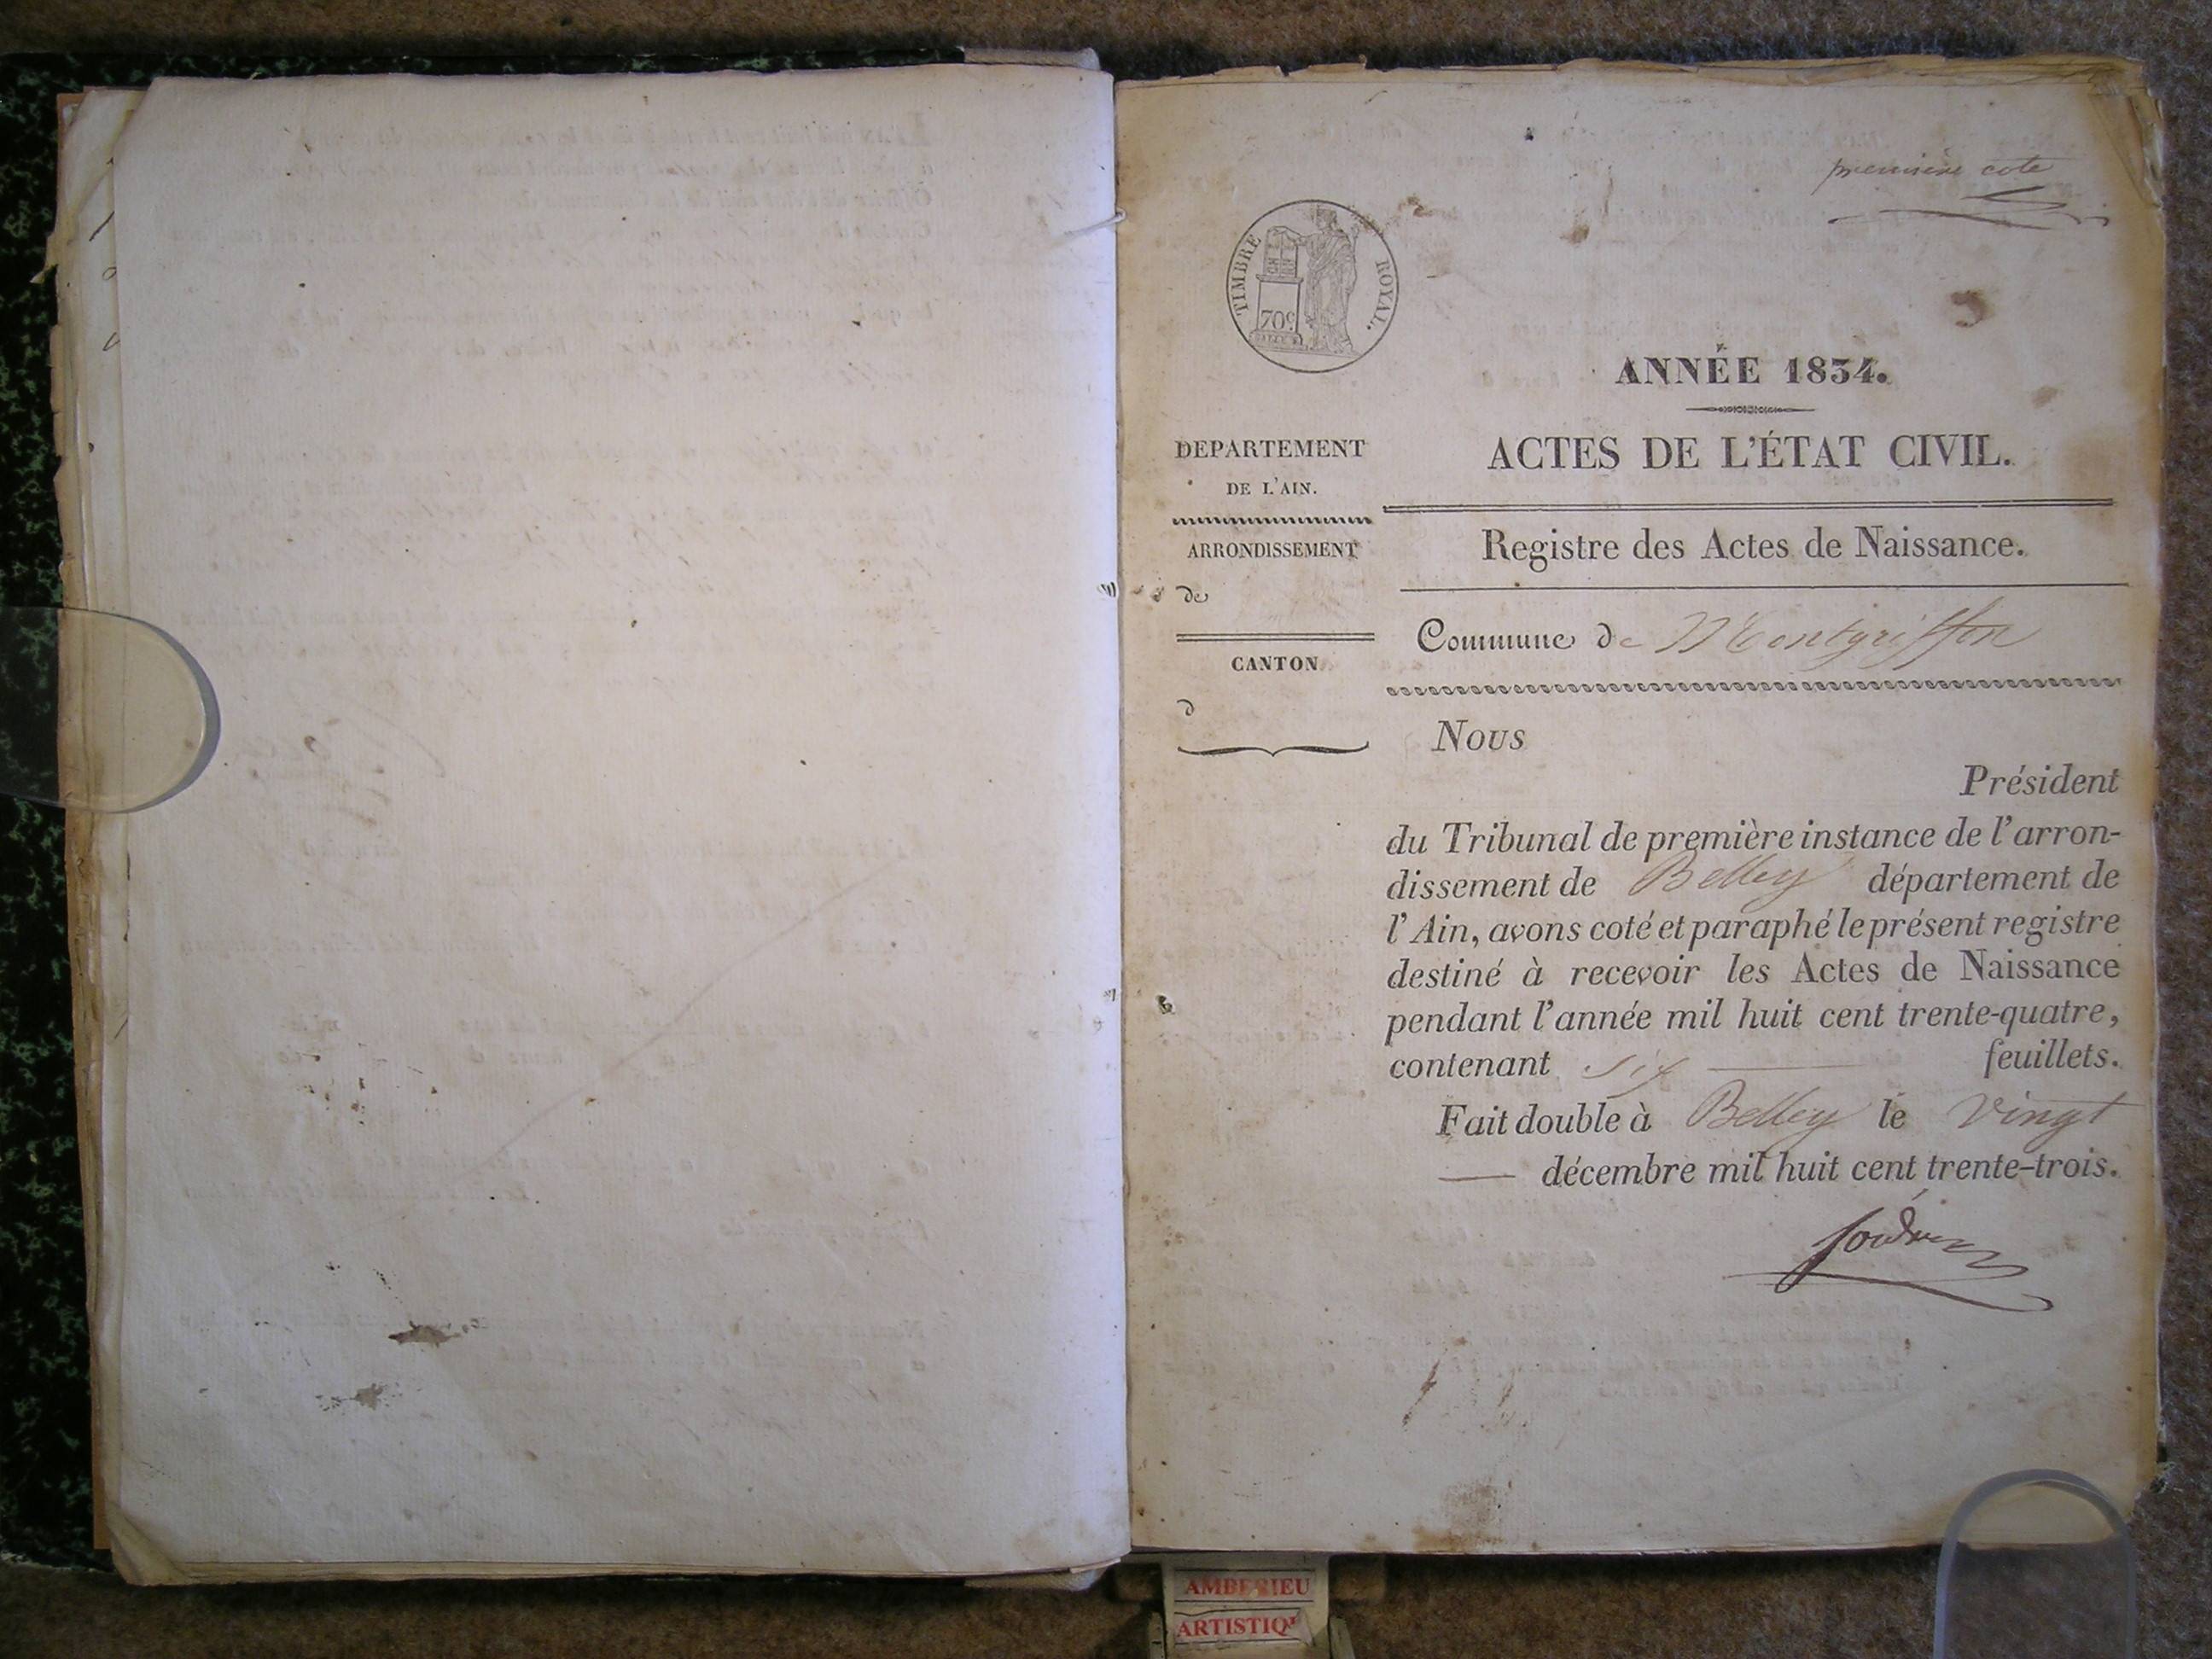 première cote
TIMBRE ROYAL.
70c
ANNÉE 1834.
ACTES DE L'ÉTAT CIVIL.
Registre des Actes de Naissance.
Commune de Montgriffon
DEPARTEMENT
DE L'AIN.
ARRONDISSEMENT
de
CANTON
d
Nous
Président
du Tribunal de première instance de l'arron-
dissement de Belley département de
l'Ain, avons coté et paraphé le présent registre
destiné à recevoir les Actes de Naissance
pendant l'année mil huit cent trente-quatre,
contenant six feuillets.
Fait double à Belley le vingt
— décembre mil huit cent trente-trois.
AMBERIEU
ARTISTIQU